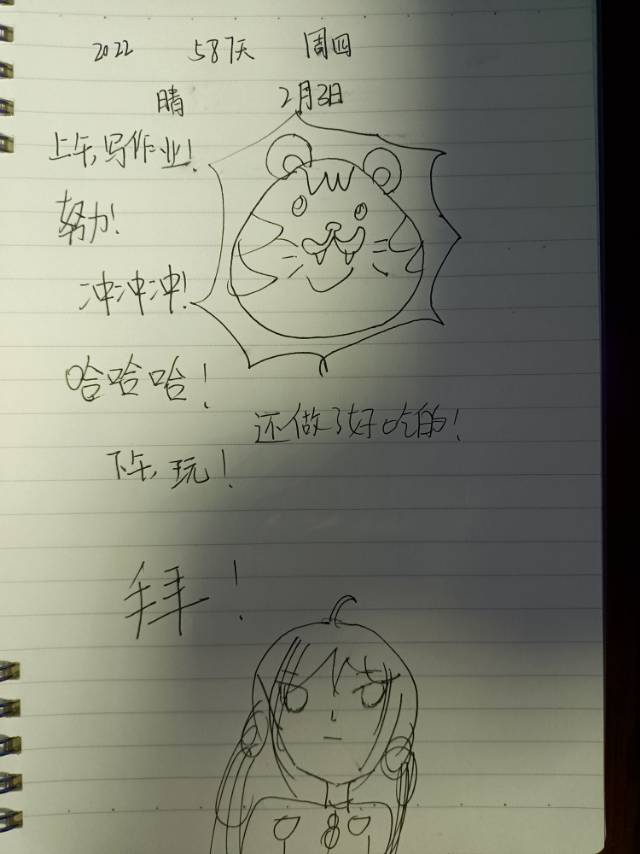 2022 587天 周四
晴 2月3日
上午,写作业!
努力!
冲冲冲!
哈哈哈!
还做了好吃的!
下午,玩!
拜!